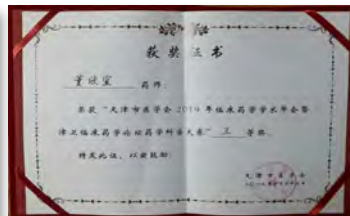 获奖证书
董欣宝 药师:
荣获“天津市医学会2019年临床药学学术年会暨
津卫临床药学论坛药学科普大赛” 三 等奖,
特发此证,以资鼓励!
天津市医学会